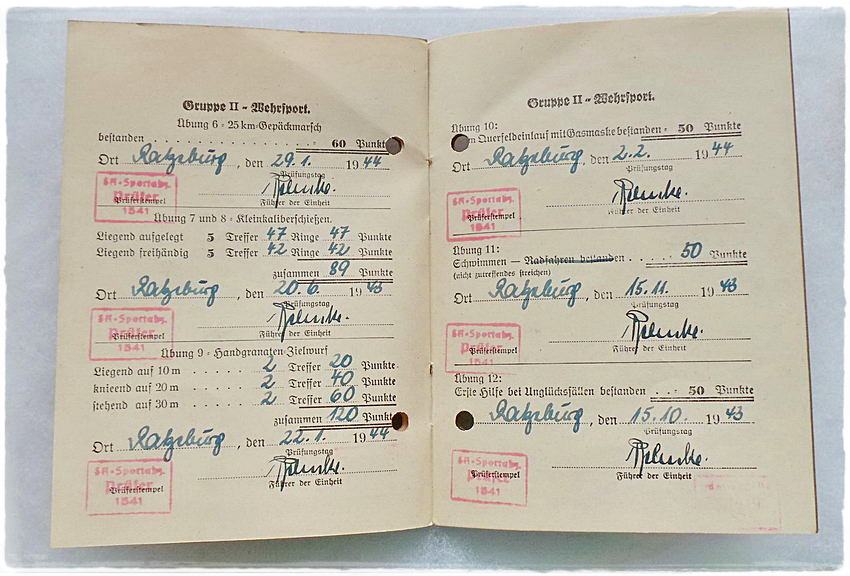 Gruppe II - Wehrsport.
Übung 6 = 25 km-Gepäckmarsch
bestanden . . . . . . . . . . . 60 Punkte
Ort Ratzeburg, den 29.1. 1944
Prüfungstag
SA-Sportabz.
Prüfer
1541
Prüferstempel
Führer der Einheit
Übung 7 und 8 = Kleinkaliberschießen.
Liegend aufgelegt 5 Treffer 47 Ringe 47 Punkte
Liegend freihändig 5 Treffer 42 Ringe 42 Punkte
zusammen 89 Punkte
Ort Ratzeburg, den 20.6. 1943
Prüfungstag
SA-Sportabz.
Prüfer
1541
Prüferstempel
Führer der Einheit
Übung 9 = Handgranaten-Zielwurf
Liegend auf 10 m . . . . . 2 Treffer 20 Punkte
knieend auf 20 m . . . . . 2 Treffer 40 Punkte
stehend auf 30 m . . . . . 2 Treffer 60 Punkte
zusammen 120 Punkte
Ort Ratzeburg, den 22.1. 1944
Prüfungstag
SA-Sportabz.
Prüfer
1541
Prüferstempel
Führer der Einheit
Gruppe II - Wehrsport.
Übung 10:
Querfeldeinlauf mit Gasmaske bestanden = 50 Punkte
Ort Ratzeburg, den 2.2. 1944
Prüfungstag
SA-Sportabz.
Prüfer
1541
Prüferstempel
Führer der Einheit
Übung 11:
Schwimmen — Radfahren bestanden . . . . 50 Punkte
(nicht zutreffendes streichen)
Ort Ratzeburg, den 15.11. 1943
Prüfungstag
SA-Sportabz.
Prüfer
1541
Prüferstempel
Führer der Einheit
Übung 12:
Erste Hilfe bei Unglücksfällen bestanden . . . = 50 Punkte
Ratzeburg, den 15.10. 1943
Prüfungstag
SA-Sportabz.
Prüfer
1541
Prüferstempel
Führer der Einheit